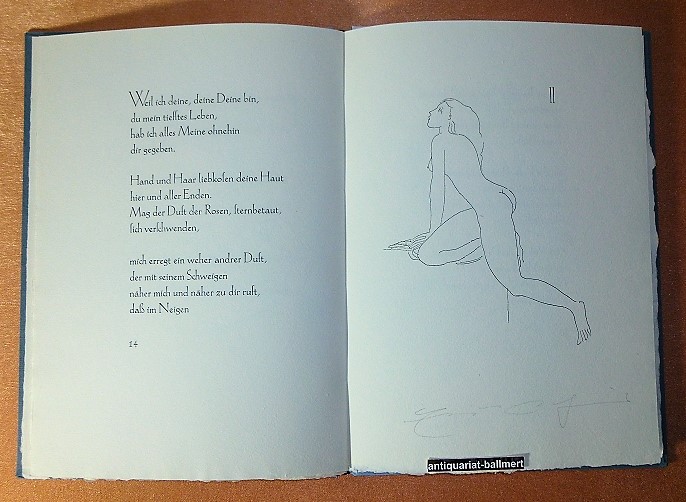 Weil ich deine, deine Deine bin,
du mein tiefſtes Leben,
hab ich alles Meine ohnehin
dir gegeben.
Hand und Haar liebkoſen deine Haut
hier und aller Enden.
Mag der Duft der Roſen, ſternbetaut,
ſich verſchwenden,
mich erregt ein weher andrer Duft,
der mit ſeinem Schweigen
näher mich und näher zu dir ruft,
daß im Neigen
14
II
antiquariat-ballmert